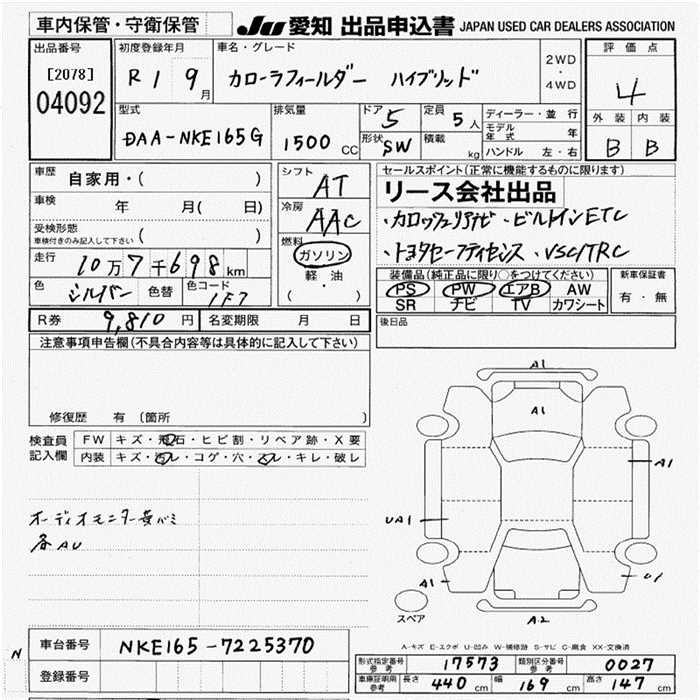 車内保管・守衛保管
JU 愛知 出品申込書 JAPAN USED CAR DEALERS ASSOCIATION
出品番号
[2078]
04092
初度登録年月
R1 9月
車名・グレード
カローラフィールダー ハイブリッド
2WD
・
4WD
評価点
4
外装 内装
B B
型式
DAA-NKE165G
排気量
1500 CC
ドア 5
形状 SW
定員 5人
積載 kg
ディーラー・並行
モデル年式 年
ハンドル 左・右
車歴 自家用・( )
車検 年 月( 日)
受検形態
車検付きのみ記入して下さい ( )
走行 10万7千698km
色 シルバー 色替 色コード 1F7
シフト AT
冷房 AAC
燃料
ガソリン
軽・油
( ・ )
セールスポイント(正常に機能するものに限ります)
リース会社出品
・カロッツェリアナビ・ビルトインETC
・トヨタセーフティセンス・VSC/TRC
装備品(純正品に限り○をつけてください)
PS PW エアB AW
SR ナビ TV カワシート
新車保証書
有・無
R券 9,810円 名変期限 月 日
後日品
注意事項申告欄(不具合内容等は具体的に記入して下さい)
修復歴 有(箇所 )
検査員記入欄
FW キズ・飛石・ヒビ割・リペア跡・X要
内装 キズ・汚レ・コゲ・穴・スレ・キレ・破レ
オーディオモニター黄バミ
各AU
A1
A1
A1
UA1
A1
U1
A2
スペア
A-キズ E-エクボ U-凹み W-補修跡 S-サビ C-腐食 XX-交換済
N
車台番号 NKE165-7225370
登録番号
型式指定番号 参考 17573 類別区分番号 参考 0027
車庫証明用 参考 長さ 440cm 幅 169cm 高さ 147cm